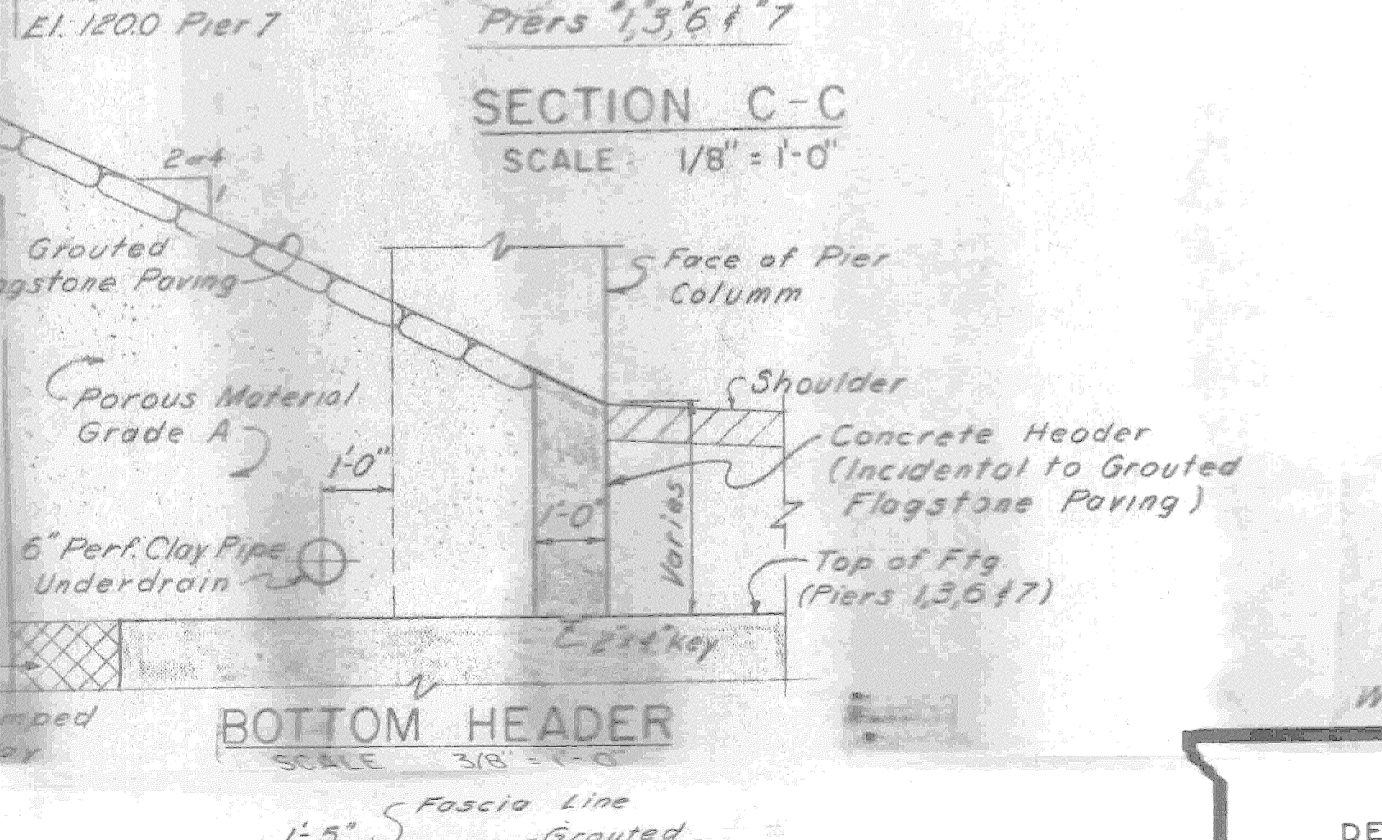 El. 120.0 Pier 7
Piers #1, 3, 6 & #7
SECTION C-C
SCALE: 1/8" = 1'-0"
1
Grouted
Paving
Face of Pier
Columm
Shoulder
Porous Material
Grade A
1'-0"
Concrete Header
(Incidental to Grouted
Flagstone Paving)
1'-0"
Varies
6" Perf. Clay Pipe
Underdrain
Top of Ftg
(Piers 1,3,6 & 7)
2"x4" Key
BOTTOM HEADER
SCALE 3/8" = 1'-0"
Fascia Line
1'-5"
Grouted
DE